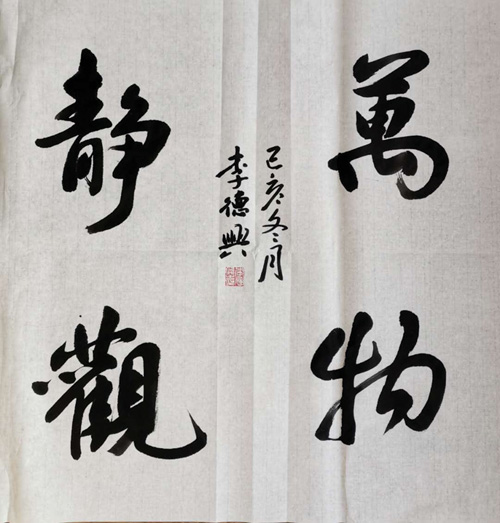 萬物
靜觀
己亥冬月
李德興